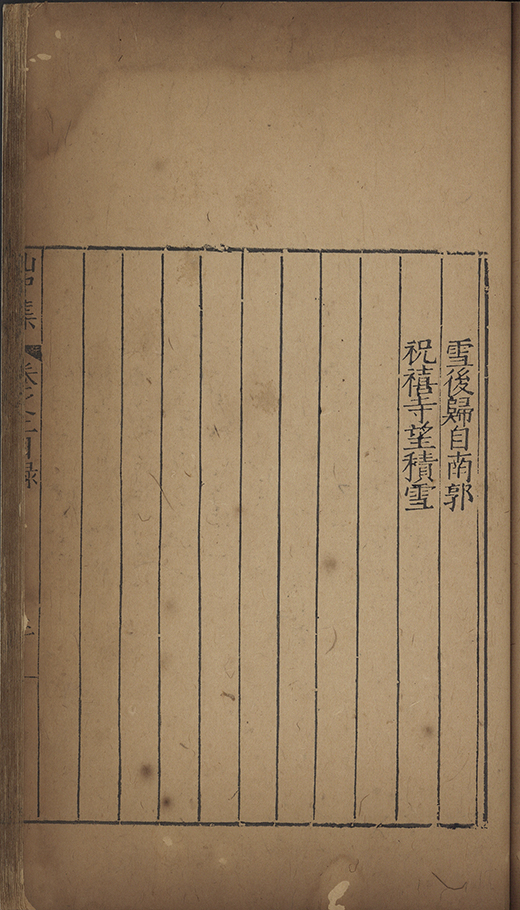 雪後歸自南郭
祝禧寺望積雪
山中集
卷之三目録